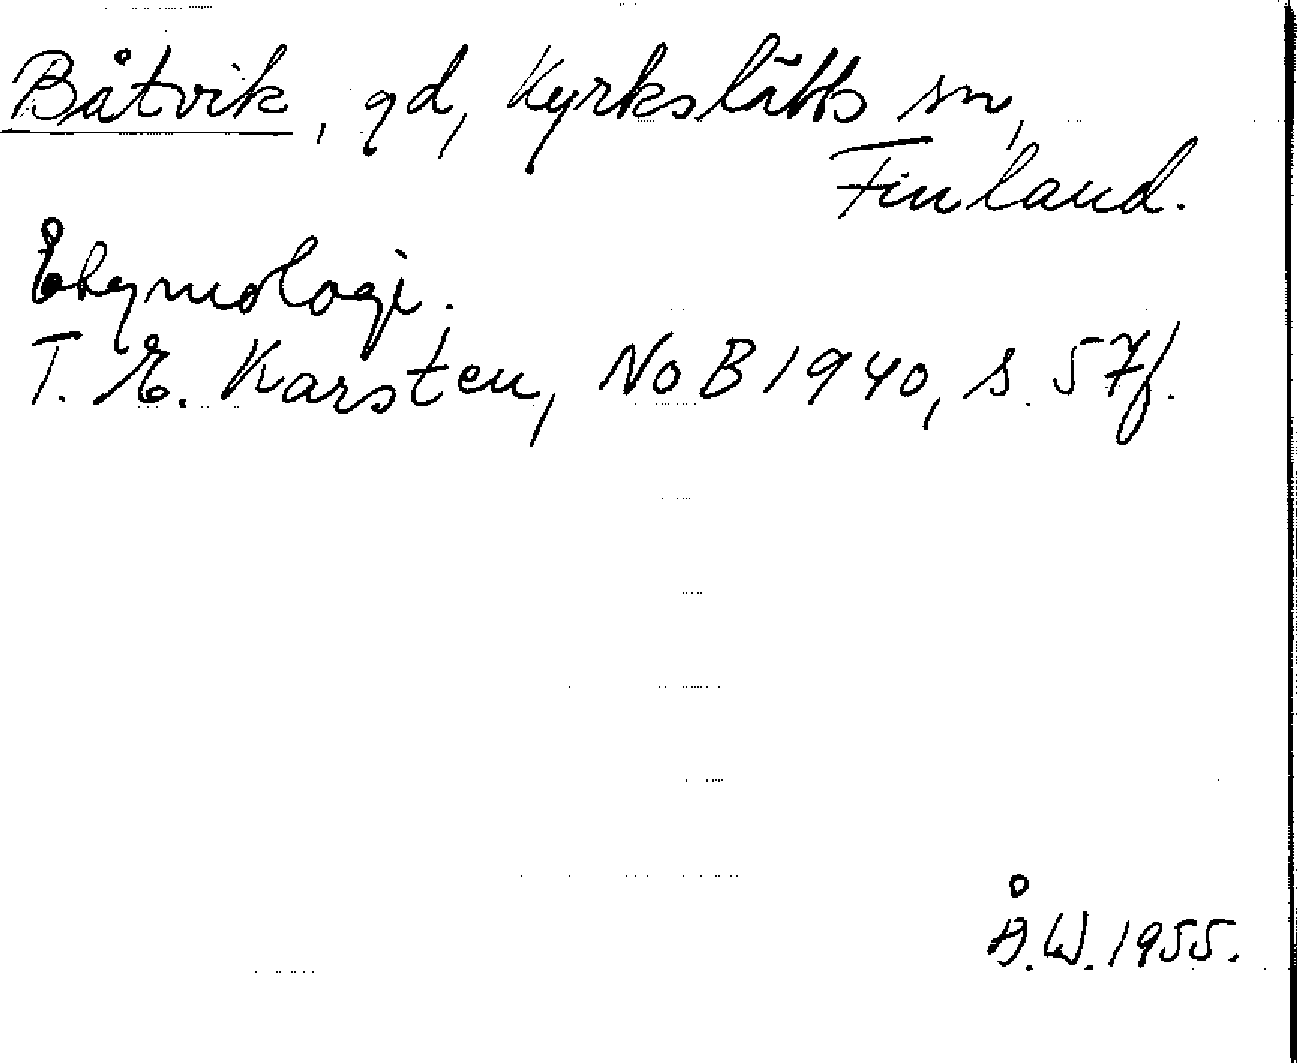 Båtvik, gd, Kyrkslätts sn,
Finland.
Etymologi.
T. E. Karsten, NoB 1940, s. 57f.
Å.W. 1955.